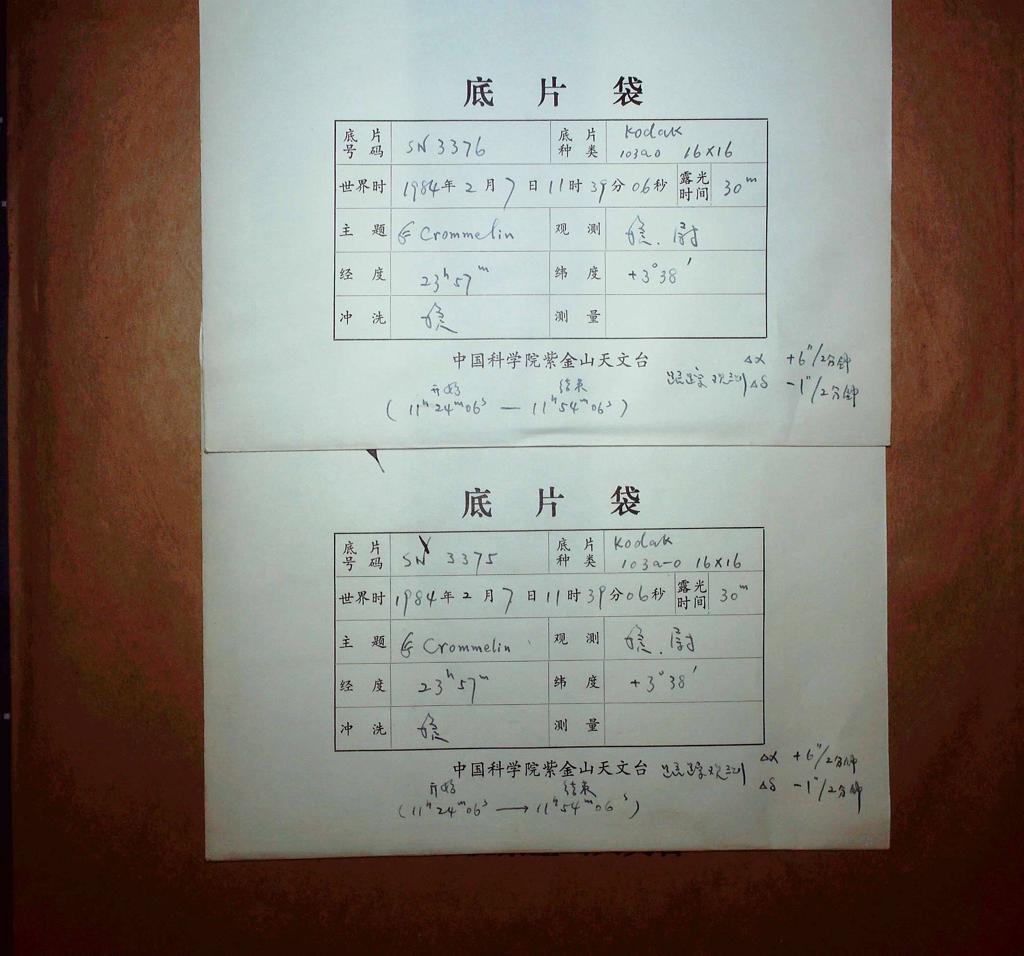 底片袋
底片号码 SN 3376 底片种类 Kodak 103aO 16×16
世界时 1984年2月7日11时39分06秒 露光时间 30ᵐ
主题 Crommelin 观测
经度 23ʰ57ᵐ 纬度 +3°38′
冲洗 测量
中国科学院紫金山天文台
跟踪观测 Δα +6″/2分钟
Δδ -1″/2分钟
开始 结束
(11ʰ24ᵐ06ˢ — 11ʰ54ᵐ06ˢ)
底片袋
底片号码 SN 3375 底片种类 Kodak 103a-O 16×16
世界时 1984年2月7日11时39分06秒 露光时间 30ᵐ
主题 Crommelin 观测
经度 23ʰ57ᵐ 纬度 +3°38′
冲洗 测量
中国科学院紫金山天文台 跟踪观测 Δα +6″/2分钟
Δδ -1″/2分钟
开始 结束
(11ʰ24ᵐ06ˢ → 11ʰ54ᵐ06ˢ)